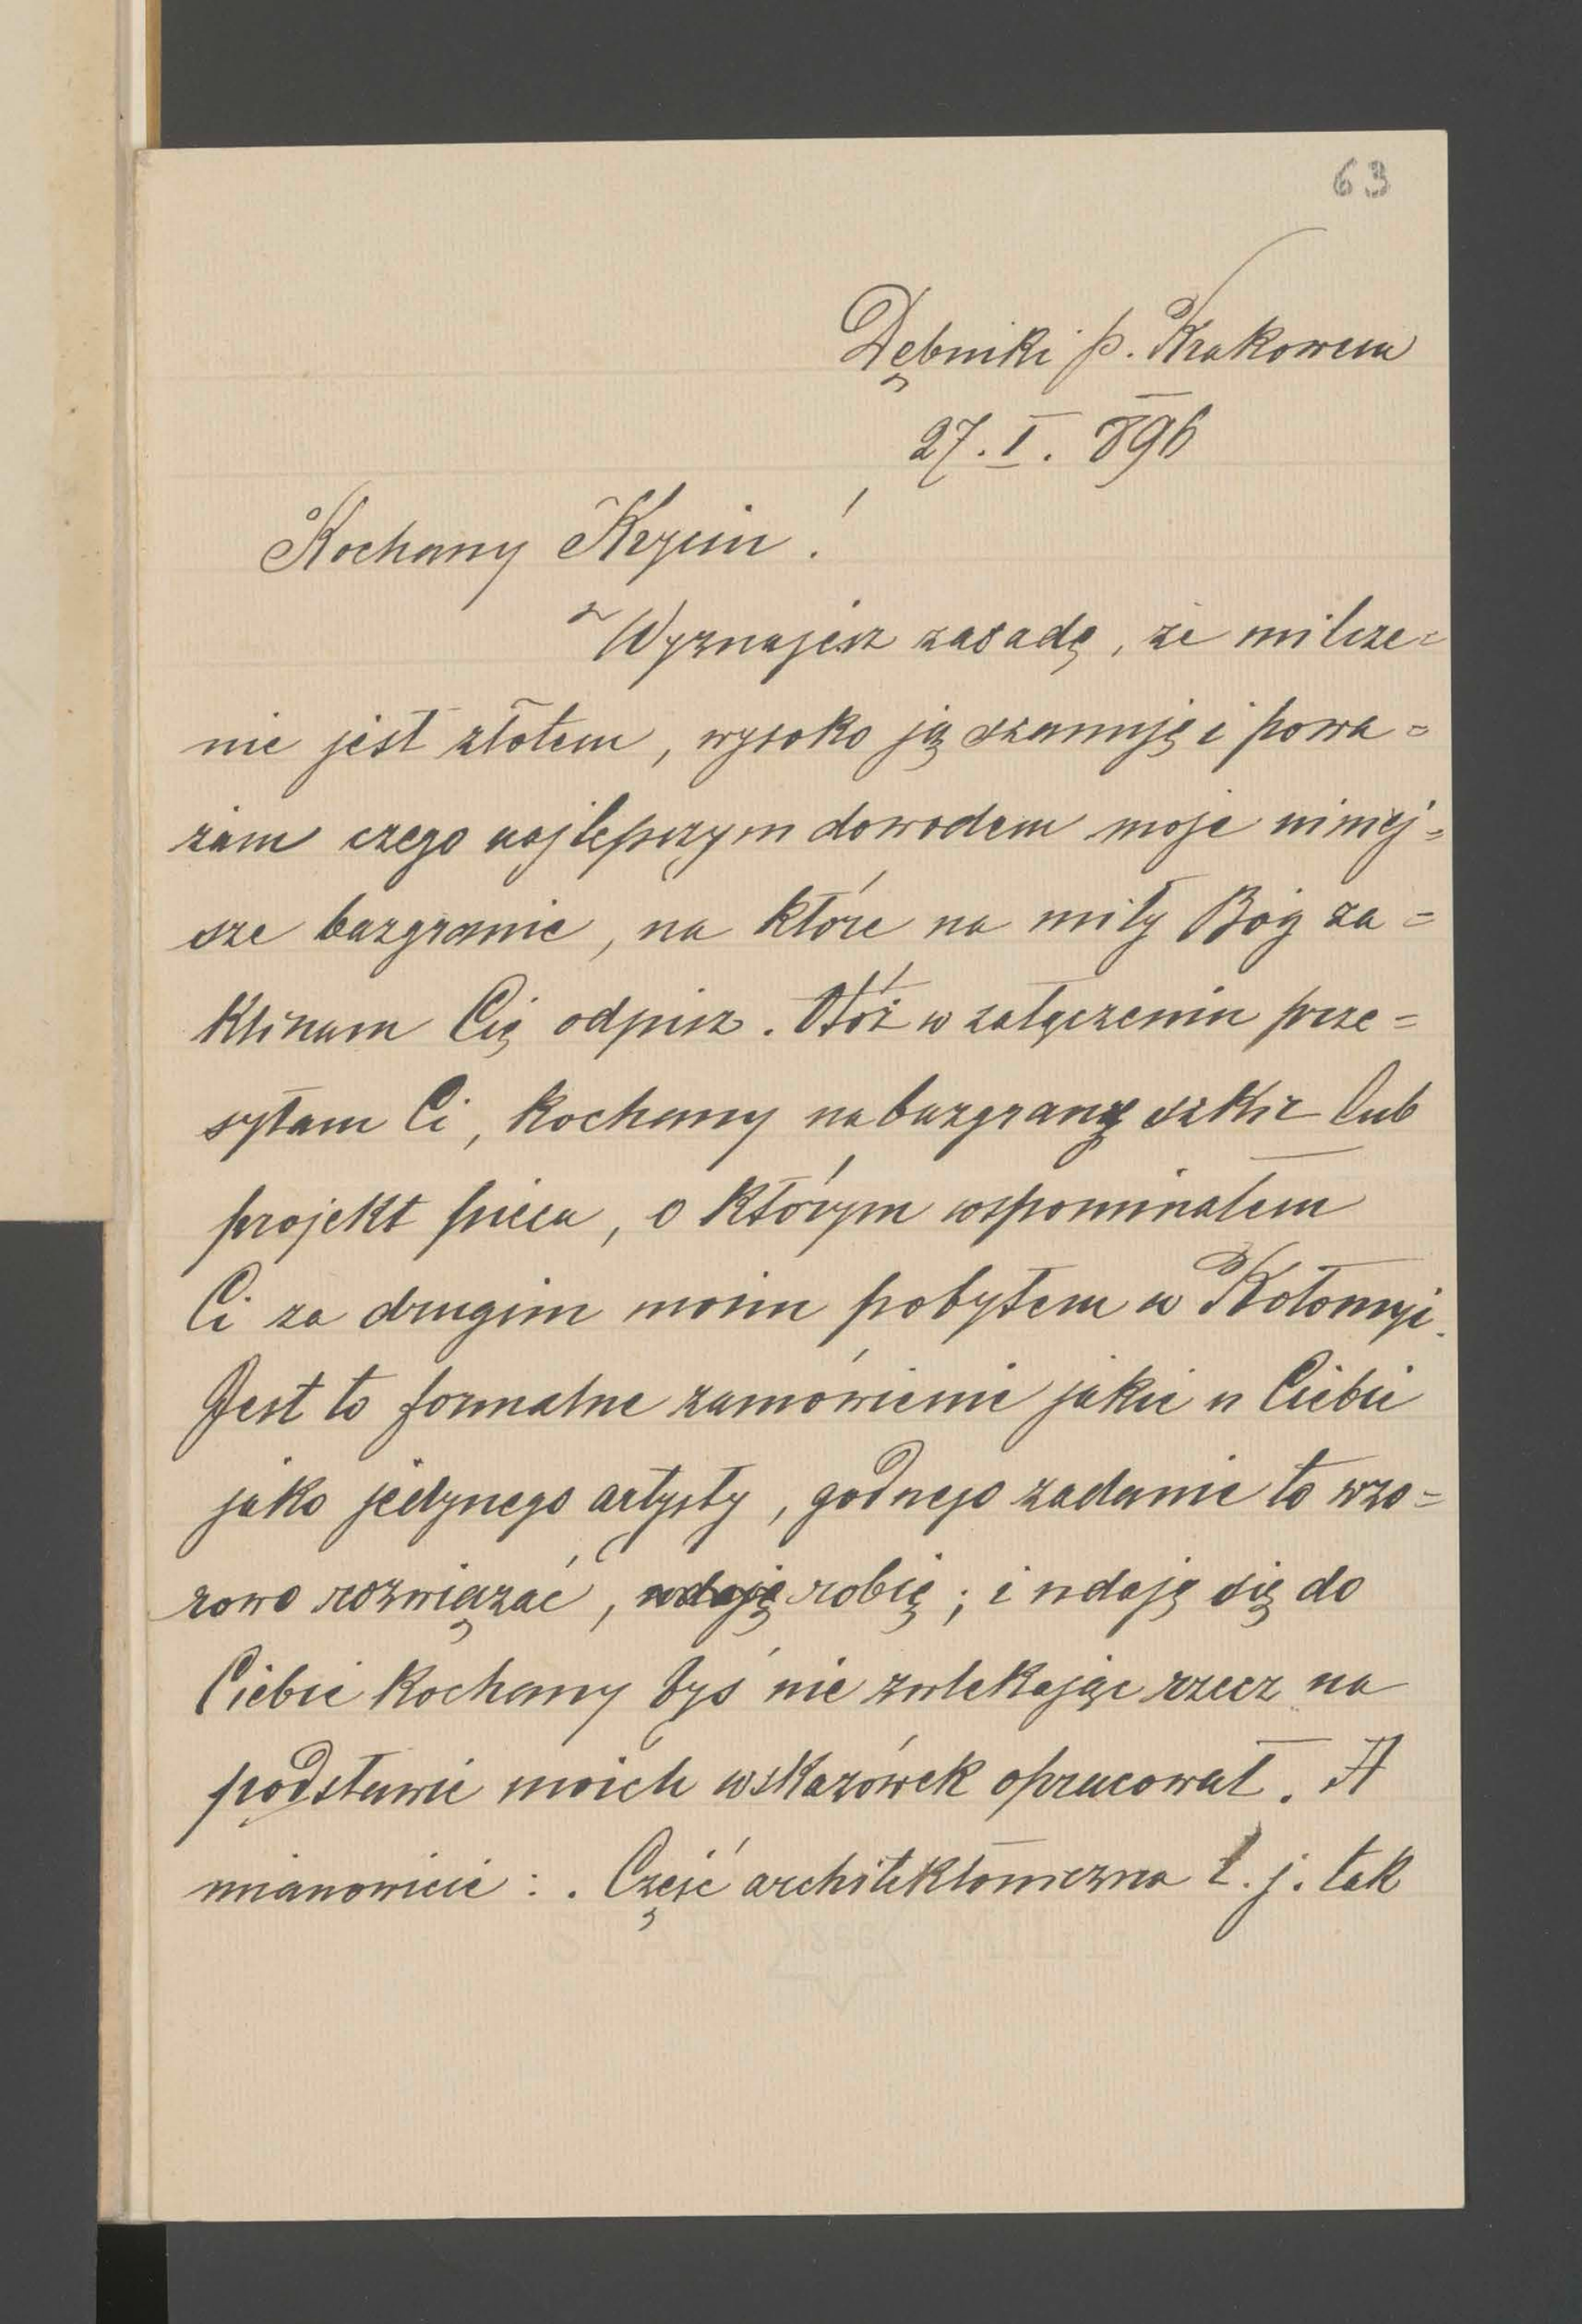 63
Dębniki p. Krakowem
27. I. 896
Kochany Krzim !
Wyznajesz zasadę, że milcze=
nie jest złotem, wysoko ją szanuję i powa=
żam czego najlepszym dowodem moje niniej=
sze bazgranie, na które na miły Bóg za=
klinam Cię odpisz. Otóż w załączeniu prze=
syłam Ci, kochany nabazgrany szkic lub
projekt pieca, o którym wspominałem
Ci za drugim moim pobytem w Kołomyi.
Jest to formalne zamówienie jakie u Ciebie
jako jedynego artysty, godnego zadanie to wzo=
rowo rozwiązać, udaję robię; i udaję się do
Ciebie kochany byś nie zwlekając rzecz na
podstawie moich wskazówek opracował. A
mianowicie : . Część architektoniczna t. j. tak